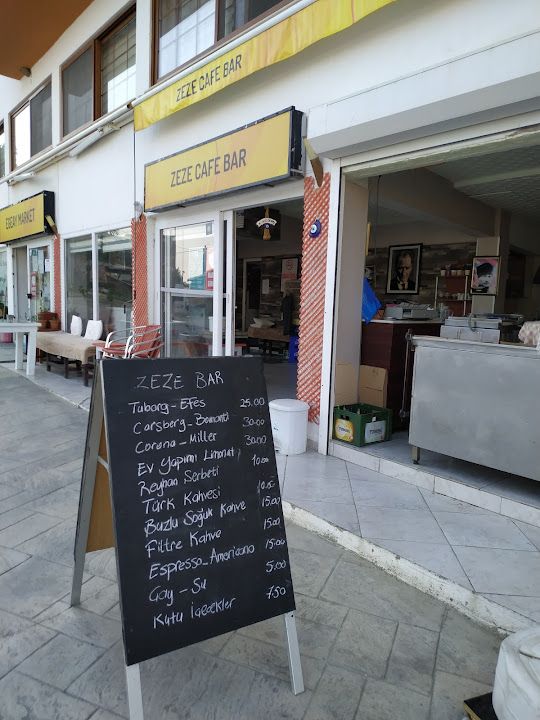 ZEZE CAFE BAR
ZEZE CAFE BAR
EGEAY MARKET
ZEZE BAR
Tuborg - EFes 25.00
Carsberg - Bomonti 30.00
Corona - Miller 30.00
Ev Yapımı Limonat
Reyhan Şerbeti
Türk Kahvesi
Buzlu Soğuk Kahve 15.00
Filtre Kahve 15.00
Espresso - Americano 15.00
Çay - Su 5.00
Kutu İçecekler 7.50